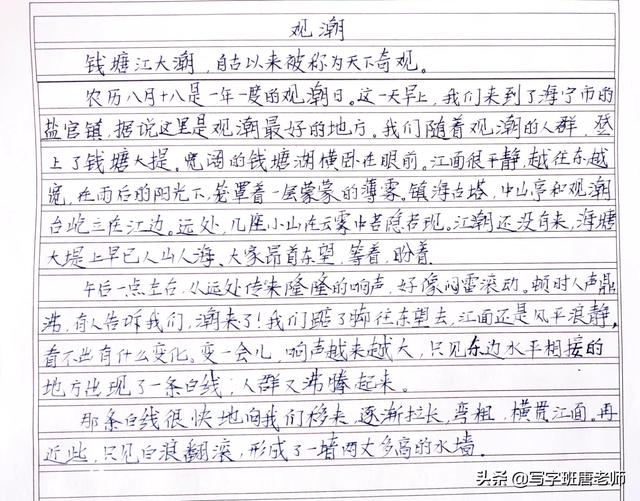 观潮
钱塘江大潮，自古以来被称为天下奇观。
农历八月十八是一年一度的观潮日。这一天早上，我们来到了海宁市的
盐官镇，据说这里是观潮最好的地方。我们随着观潮的人群，登
上了钱塘大提。宽阔的钱塘湖横卧在眼前。江面很平静，越往东越
宽，在雨后的阳光下，笼罩着一层蒙蒙的薄雾。镇海古塔，中山亭和观潮
台屹立在江边。远处，几座小山在云雾中若隐若现。江潮还没有来，海塘
大堤上早已人山人海、大家昂首东望，等着，盼着
午后一点左右，从远处传来隆隆的响声，好像闷雷滚动。顿时人声鼎
沸，有人告诉我们，潮来了！我们踮了脚往东望去，江面还是风平浪静，
看不出有什么变化。变一会儿，响声越来越大，只见东边水平相接的
地方出现了一条白线；人群又沸腾起来。
那条白线很快地向我们移来，逐渐拉长，弯粗，横贯江面。再
近些，只见白浪翻滚，形成了一堵两丈多高的水墙。
头条 @写字班唐老师